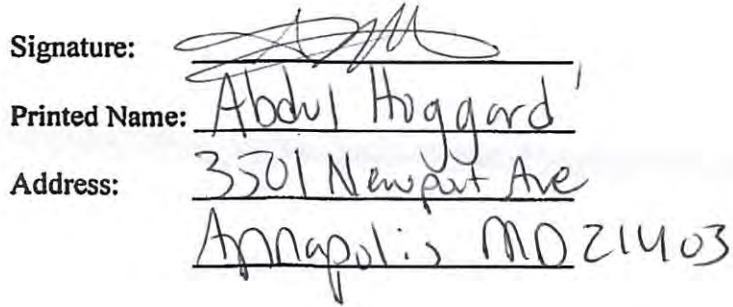 Signature:
Printed Name: Abdul Hoggard
Address: 3501 Newport Ave
Annapolis MD 21403